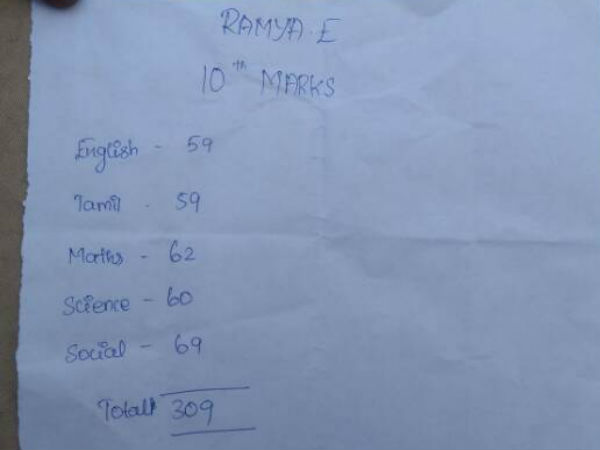 RAMYA.E
10th MARKS
English - 59
Tamil - 59
Maths - 62
Science - 60
Social - 69
Total 309